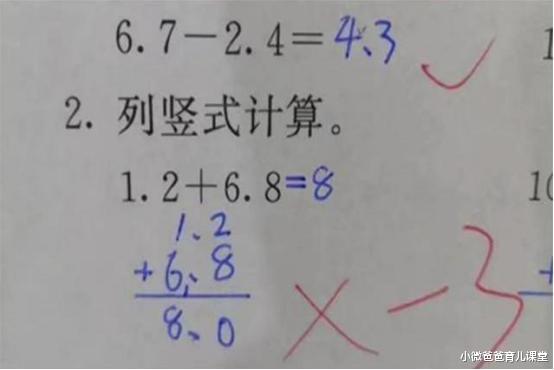 6.7－2.4＝4.3
1
2. 列竖式计算。
1.2＋6.8=8
10
1.2
+6.8
8.0
+
×－3
小微爸爸育儿课堂